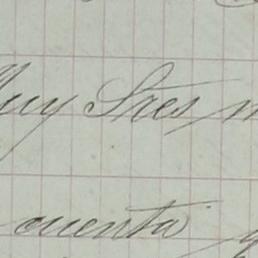 Muy Sres m
cuenta